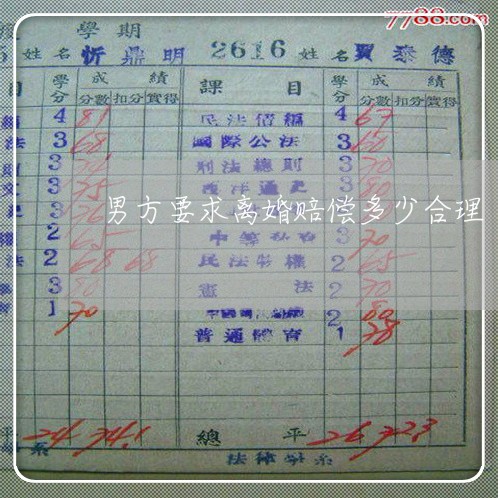 7788.com
學期
姓名 忻鼎明 2616 姓名 賈泰德
目 學分 成績 課目 學分 成績
分數 扣分 實得 分數 扣分 實得
4 81 民法債編 4 67
法 3 68 國際公法 3 60
3 刑法總則 3 70
3 75 西洋通史 3 80
3
男方要求离婚赔偿多少合理
2 65 3 70
法 2 68 68 民法物權 2 65
3 80 憲法 2 70
1 70 2 80
普通體育 1 78
平 24 74.1 總平 26 72.3
系 法律學系